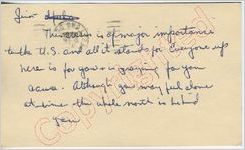 This action is of major importance
to the U.S. and all it stands for. Everyone up
here is for you & is praying for your
cause. Although you may feel alone
at time the whole north is behind
you